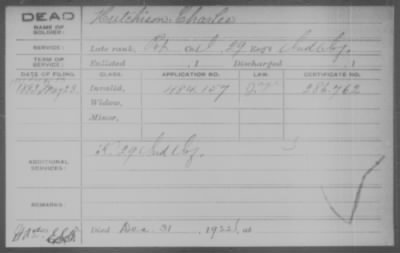 DEAD
NAME OF SOLDIER:
Hutchison, Charles
SERVICE:
Late rank, Pvt Co. I, 29 Reg't Ind Inf.
TERM OF SERVICE:
Enlisted , 1 Discharged , 1
DATE OF FILING. CLASS. APPLICATION NO. LAW. CERTIFICATE NO.
1883 May 23. Invalid, 484.107 286.762
Widow,
Minor,
ADDITIONAL SERVICES:
K 29 Ind Inf.
REMARKS:
Died Dec. 31 1922, at